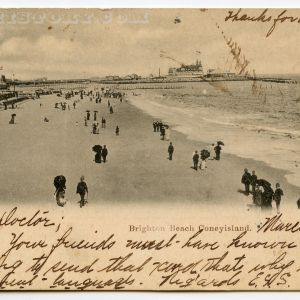 HISTORY.COM
Thanks for
Brighton Beach Coneyisland.
Doctor.
Your friends must have known
to send that card that why
language. Regards E.H.S.